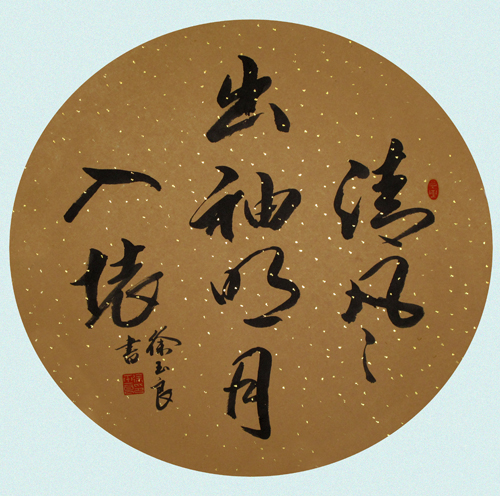 清风
出袖明月
入懷
徐玉良
書